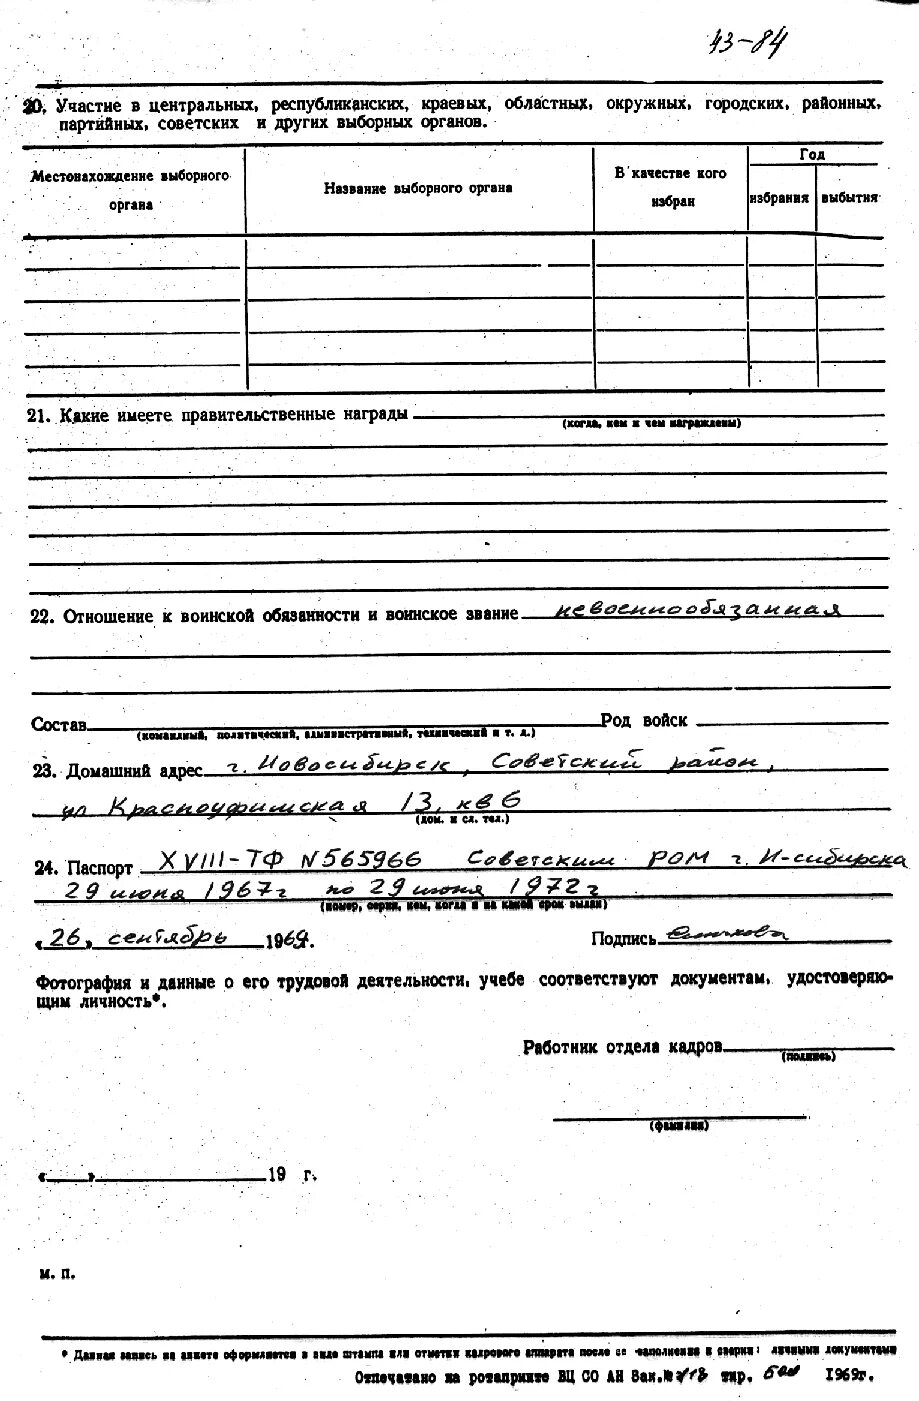 43-84
20. Участие в центральных, республиканских, краевых, областных, окружных, городских, районных,
партийных, советских и других выборных органов.
Местонахождение выборного органа
Название выборного органа
В качестве кого избран
Год
избрания
выбытия
21. Какие имеете правительственные награды
(когда, кем и чем награждены)
22. Отношение к воинской обязанности и воинское звание невоеннообязанная
Состав Род войск
(командный, политический, административный, технический и т. д.)
23. Домашний адрес г. Новосибирск, Советский район,
ул Красноуфимская 13, кв 6
(дом. и сл. тел.)
24. Паспорт XVIII-ТФ N565966 Советским РОМ г. Н-сибирска
29 июня 1967г по 29 июня 1972г
(номер, серия, кем, когда и на какой срок выдан)
«26» сентябрь 1969г. Подпись
Фотография и данные о его трудовой деятельности, учебе соответствуют документам, удостоверяю-
щим личность*.
Работник отдела кадров
(подпись)
(фамилия)
« » 19 г.
м. п.
* Данная запись на анкете оформляется в виде штампа или отметки кадрового аппарата после ее заполнения и сверки с личными документами
Отпечатано на ротапринте ВЦ СО АН Зак.№ тир. 500 1969г.